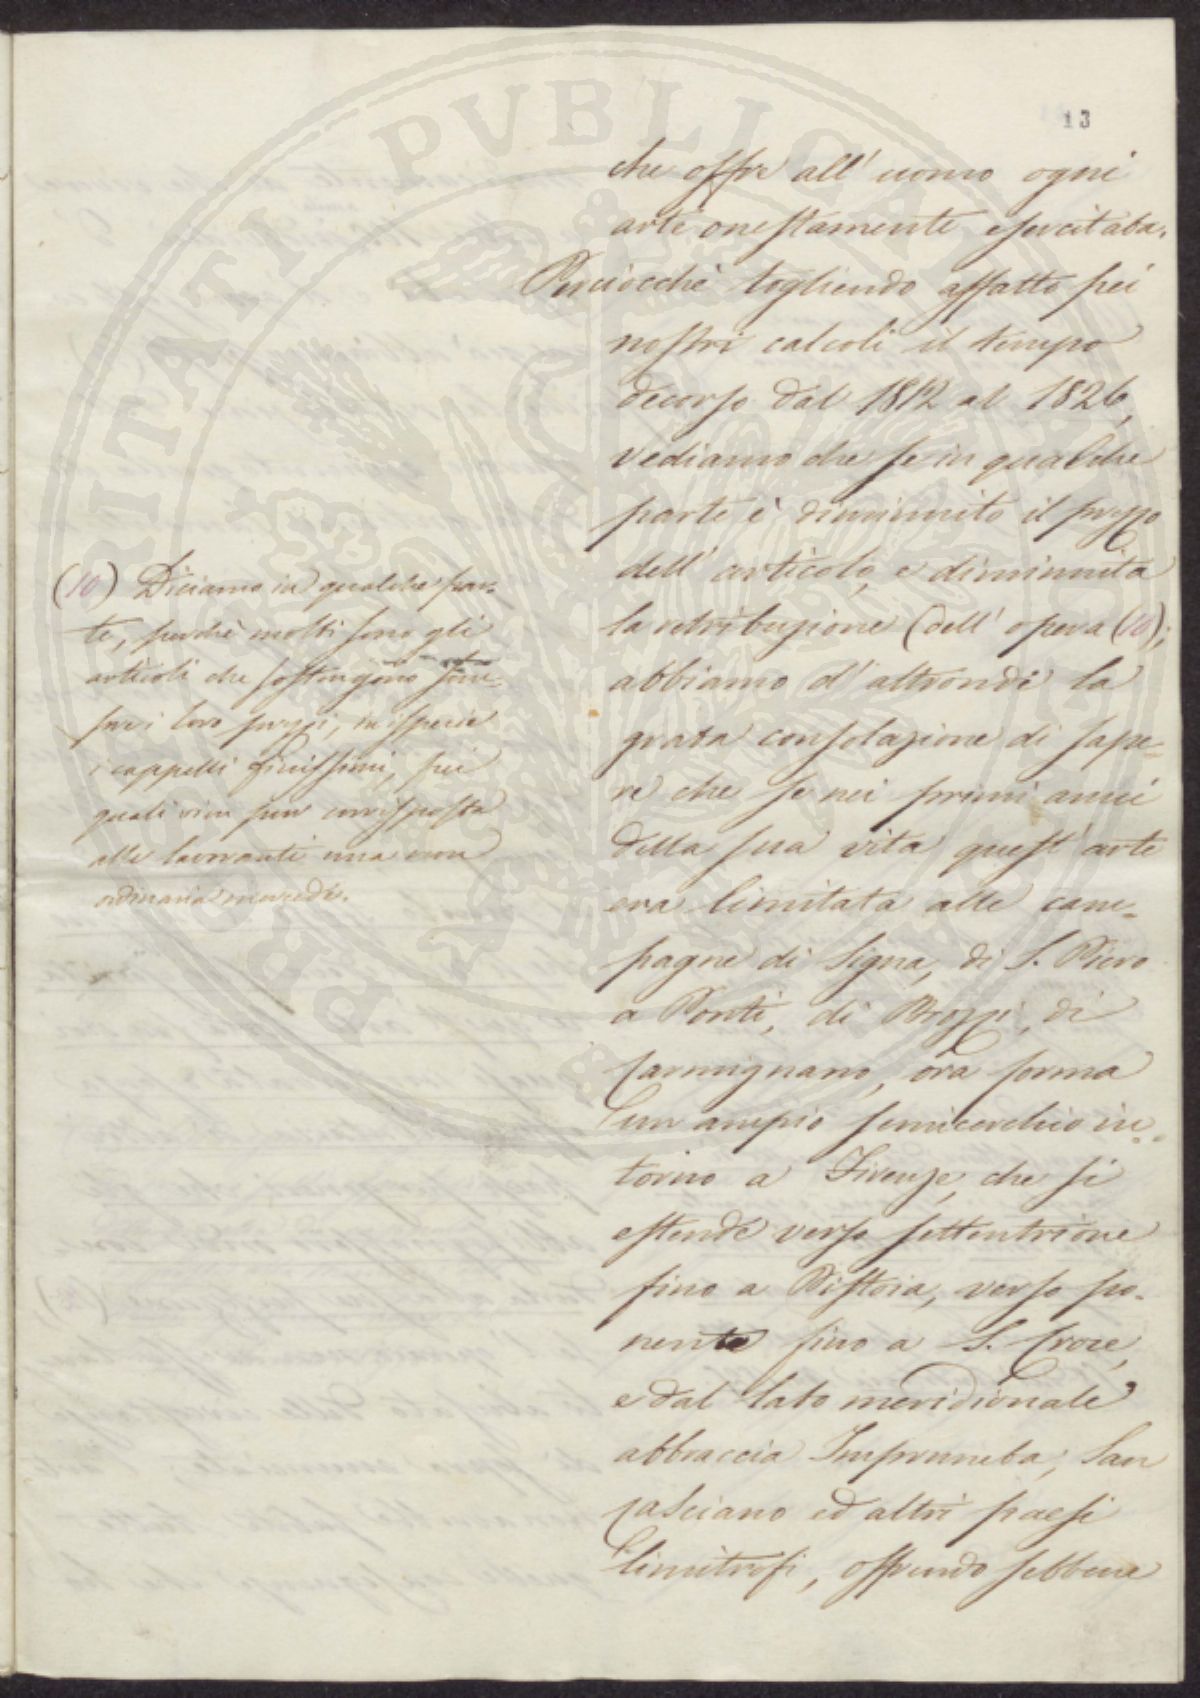 13
che offre all' uomo ogni
arte onestamente esercitata.
Perciocchè togliendo affatto pei
nostri calcoli il tempo
decorso dal 1812 al 1826,
vediamo che se in qualche
parte è diminuito il prezzo
dell' articolo, e diminuita
la retribuzione dell' opera (10);
abbiamo d' altronde la
grata consolazione di sape-
re che se nei primi anni
della sua vita quest' arte
era limitata alle cam-
pagne di Signa, di S. Piero
a Ponti, di Brozzi, di
Carmignano, ora forma
un ampio semicerchio in-
torno a Firenze, che si
estende verso settentrione
fino a Pistoia, verso po-
nente fino a S. Croce,
e dal lato meridionale
abbraccia Impruneta, San
Casciano ed altri paesi
limitrofi, offrendo sebbene
(10) Diciamo in qualche par-
te, perchè molti sono gli
articoli che sostengono sem-
pre i loro prezzi, in ispecie
i cappelli finissimi, pei
quali vien pur corrisposta
alle lavoranti una non
ordinaria mercede.
PVBLICAE
PROSPERITATI